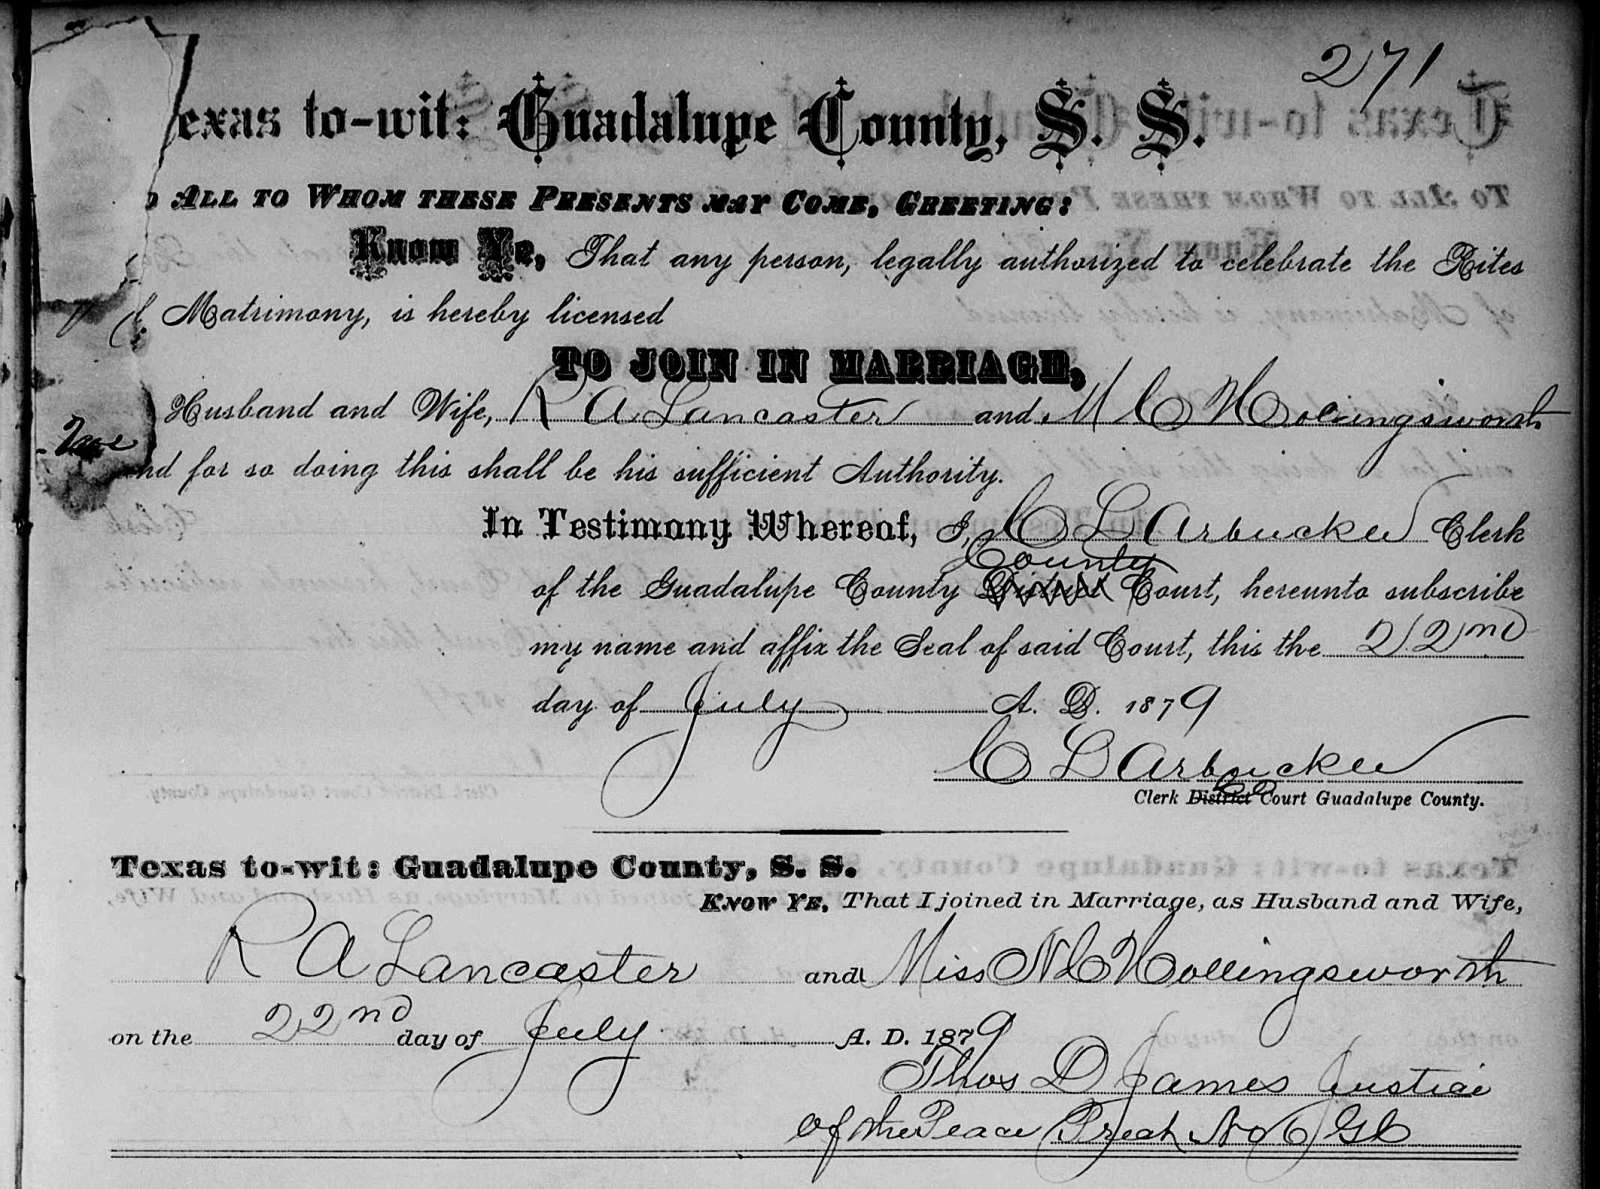 271
exas to-wit: Guadalupe County, S. S.
o All to Whom these Presents may Come, Greeting:
Know Ye, That any person, legally authorized to celebrate the Rites
of Matrimony, is hereby licensed
TO JOIN IN MARRIAGE,
Husband and Wife, R A Lancaster and M C Hollingsworth
nd for so doing this shall be his sufficient Authority.
In Testimony Whereof, I, C L Arbuckle Clerk
County
of the Guadalupe County District Court, hereunto subscribe
my name and affix the Seal of said Court, this the 22nd
day of July A. D. 1879
C L Arbuckle
Co
Clerk District Court Guadalupe County.
Texas to-wit: Guadalupe County, S. S.
Know Ye, That I joined in Marriage, as Husband and Wife,
R A Lancaster and Miss N C Hollingsworth
on the 22nd day of July A. D. 1879
Thos D James Justice
of the Peace Precht No 6 G C